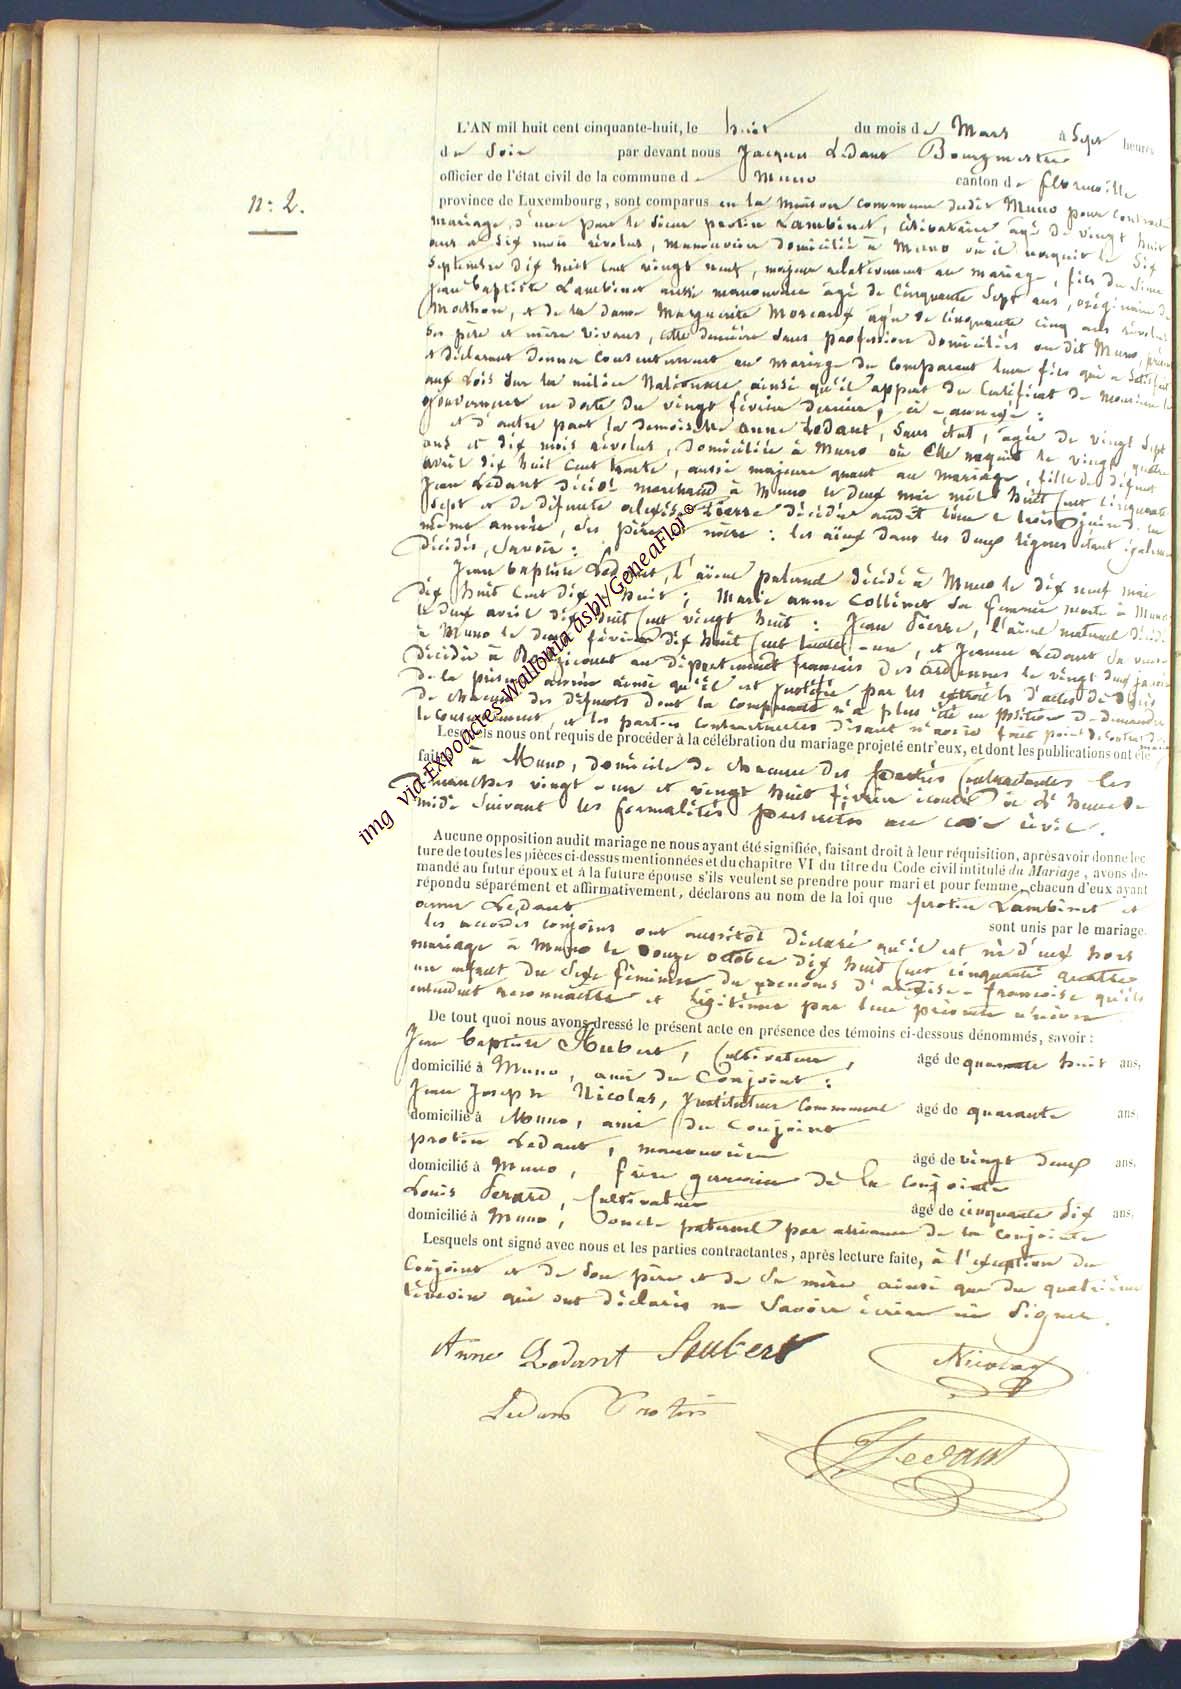 n° 2.
L'AN mil huit cent cinquante-huit, le huit du mois de Mars à Sept heures
du Soir par devant nous Jacques Ledant Bourgmestre
officier de l'état civil de la commune de Muno canton de florenville
province de Luxembourg, sont comparus en la maison commune dudit Muno pour contracter
mariage, d'une part le Sieur protin Lambinet, célibataire âgé de vingt huit
ans et Six mois révolus, manouvrier domicilié à Muno où il naquit le Six
Septembre dix huit cent vingt neuf, majeur relativement au mariage, fils du Sieur
Jean baptiste Lambinet aussi manouvrier âgé de Cinquante Sept ans, originaire de
Mathon, et de la dame Marguerite Moreaux âgée de Cinquante Cinq ans révolus
Ses père et mère vivans, cette dernière Sans profession domiciliés audit Muno, présens
et déclarant donner Consentement au mariage du Comparant leur fils qui a Satisfait
aux Lois Sur la milice Nationale ainsi qu'il appert du Certificat de Monsieur le
Gouverneur en date du vingt février dernier, ci-annexé :
et d'autre part la demoiselle anne Ledant, Sans état, âgée de vingt Sept
ans et dix mois révolus, domiciliée à Muno où Elle naquit le vingt quatre
avril dix huit Cent trente, aussi majeure quant au mariage, fille de défunt
Jean Ledant décédé marchand à Muno le deux mai mil huit Cent Cinquante
Sept et de défunte alexise Pierre décédée audit lieu le trois Juin de la
même année, Ses père et mère : les aïeux dans les deux lignes étant également
décédés, Savoir :
Jean baptiste Ledant, l'aïeul paternel décédé à Muno le dix neuf mai
dix huit Cent dix huit ; Marie anne Collinet Sa femme morte à Muno
le deux avril dix huit Cent vingt huit : Jean Pierre, l'aïeul maternel décédé
à Muno le deux février dix huit Cent trente-un, et Jeanne Ledant Sa veuve
décédée à au département français des ardennes le vingt deux janvier
de la présente année ainsi qu'il est justifié par les extraits d'actes de décès
de chacun des défunts dont la comparante n'a plus été en position de demander
le consentement, et les parties contractantes disant n'avoir fait point de contrat de mariage
Lesquels nous ont requis de procéder à la célébration du mariage projeté entr'eux, et dont les publications ont été
faites à Muno, domicile de chacune des parties Contractantes les
Dimanches vingt-un et vingt huit février écoulé à heure de
midi Suivant les formalités prescrites au code civil.
Aucune opposition audit mariage ne nous ayant été signifiée, faisant droit à leur réquisition, après avoir donné lec-
ture de toutes les pièces ci-dessus mentionnées et du chapitre VI du titre du Code civil intitulé du Mariage, avons de-
mandé au futur époux et à la future épouse s'ils veulent se prendre pour mari et pour femme, chacun d'eux ayant
répondu séparément et affirmativement, déclarons au nom de la loi que protin Lambinet et
anne Ledant sont unis par le mariage.
les nouveaux conjoins ont aussitôt déclaré qu'il est né d'eux hors
mariage à Muno le douze octobre dix huit Cent cinquante quatre
un enfant du Sexe féminin du prénoms d'alexise-françoise qu'ils
entendent reconnaître et légitimer par leur présente union
De tout quoi nous avons dressé le présent acte en présence des témoins ci-dessous dénommés, savoir :
Jean baptiste Hubert, Cultivateur, âgé de quarante huit ans,
domicilié à Muno, ami du Conjoint :
Jean Joseph Nicolas, Instituteur Communal âgé de quarante ans
domicilié à Muno, ami du Conjoint
protin Ledant, manouvrier âgé de vingt deux ans,
domicilié à Muno, frère germain de la Conjointe
Louis Cultivateur âgé de cinquante dix ans,
domicilié à Muno, oncle paternel par alliance de la Conjointe
Lesquels ont signé avec nous et les parties contractantes, après lecture faite, à l'exception du
Conjoint et de Son père et de Sa mère ainsi que du quatrième
témoin qui ont déclaré ne Savoir écrire ni Signer.
Anne Ledant Hubert Nicolas
Ledant Protin
J Ledant
img via Expoactes-Wallonia asbl/GeneaFlor ©